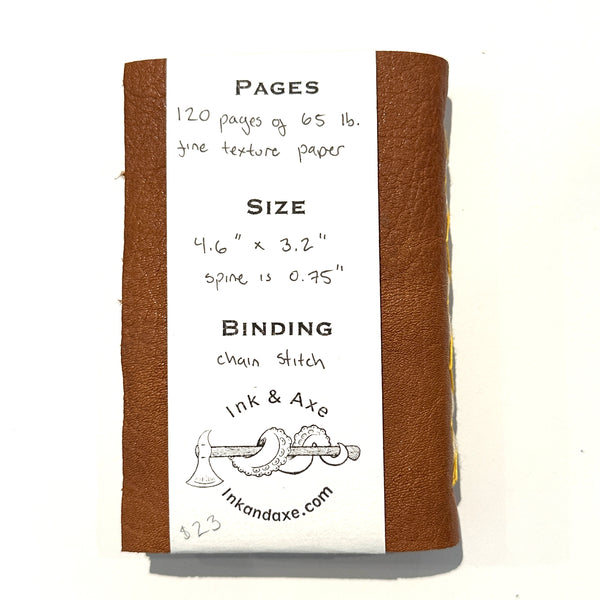 PAGES
120 pages of 65 lb.
fine texture paper
SIZE
4.6" x 3.2"
spine is 0.75"
BINDING
chain stitch
Ink & Axe
Inkandaxe.com
$23